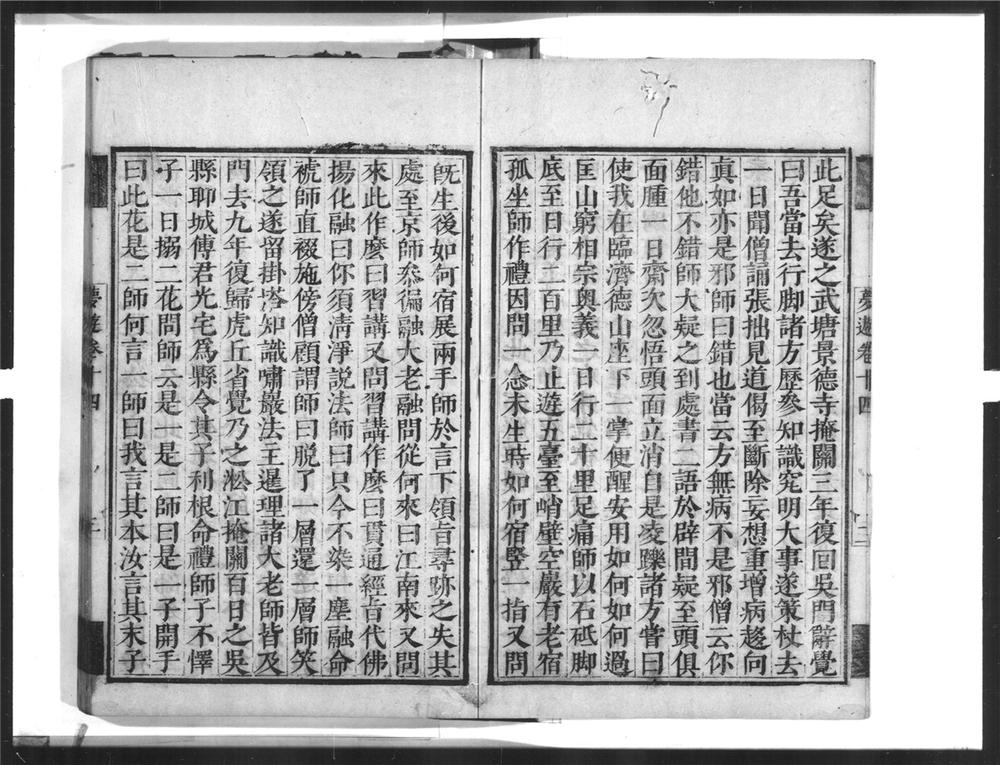 此足矣遂之武塘景德寺掩關三年復回吳門辭覺
曰吾當去行脚諸方歷參知識究明大事遂策杖去
一日聞僧誦張拙見道偈至斷除妄想重增病趍向
真如亦是邪師曰錯也當云方無病不是邪僧云你
錯他不錯師大疑之到處書二語於壁間疑至頭俱
面腫一日齋次忽悟頭面立消自是凌躒諸方嘗曰
使我在臨濟德山座下一掌便醒安用如何如何過
匡山窮相宗奥義一日行二十里足痛師以石砥脚
底至日行二百里乃止遊五臺至峭壁空巖有老宿
孤坐師作禮因問一念未生時如何宿竪一指又問
旣生後如何宿展兩手師於言下領旨尋跡之失其
處至京師叅徧融大老融問從何來曰江南來又問
來此作麽曰習講又問習講作麽曰貫通經旨代佛
揚化融曰你須清淨説法師曰只今不染一塵融命
褫師直裰施傍僧顧謂師曰脫了一層還一層師笑
領之遂留掛塔知識嘯巖法主暹理諸大老師皆及
門去九年復歸虎丘省覺乃之淞江掩關百日之吳
縣聊城傅君光宅爲縣令其子利根命禮師子不懌
子一日搦二花問師云是一是二師曰是一子開手
曰此花是二師何言一師曰我言其本汝言其末子
夢遊卷十四
三
夢遊卷十四